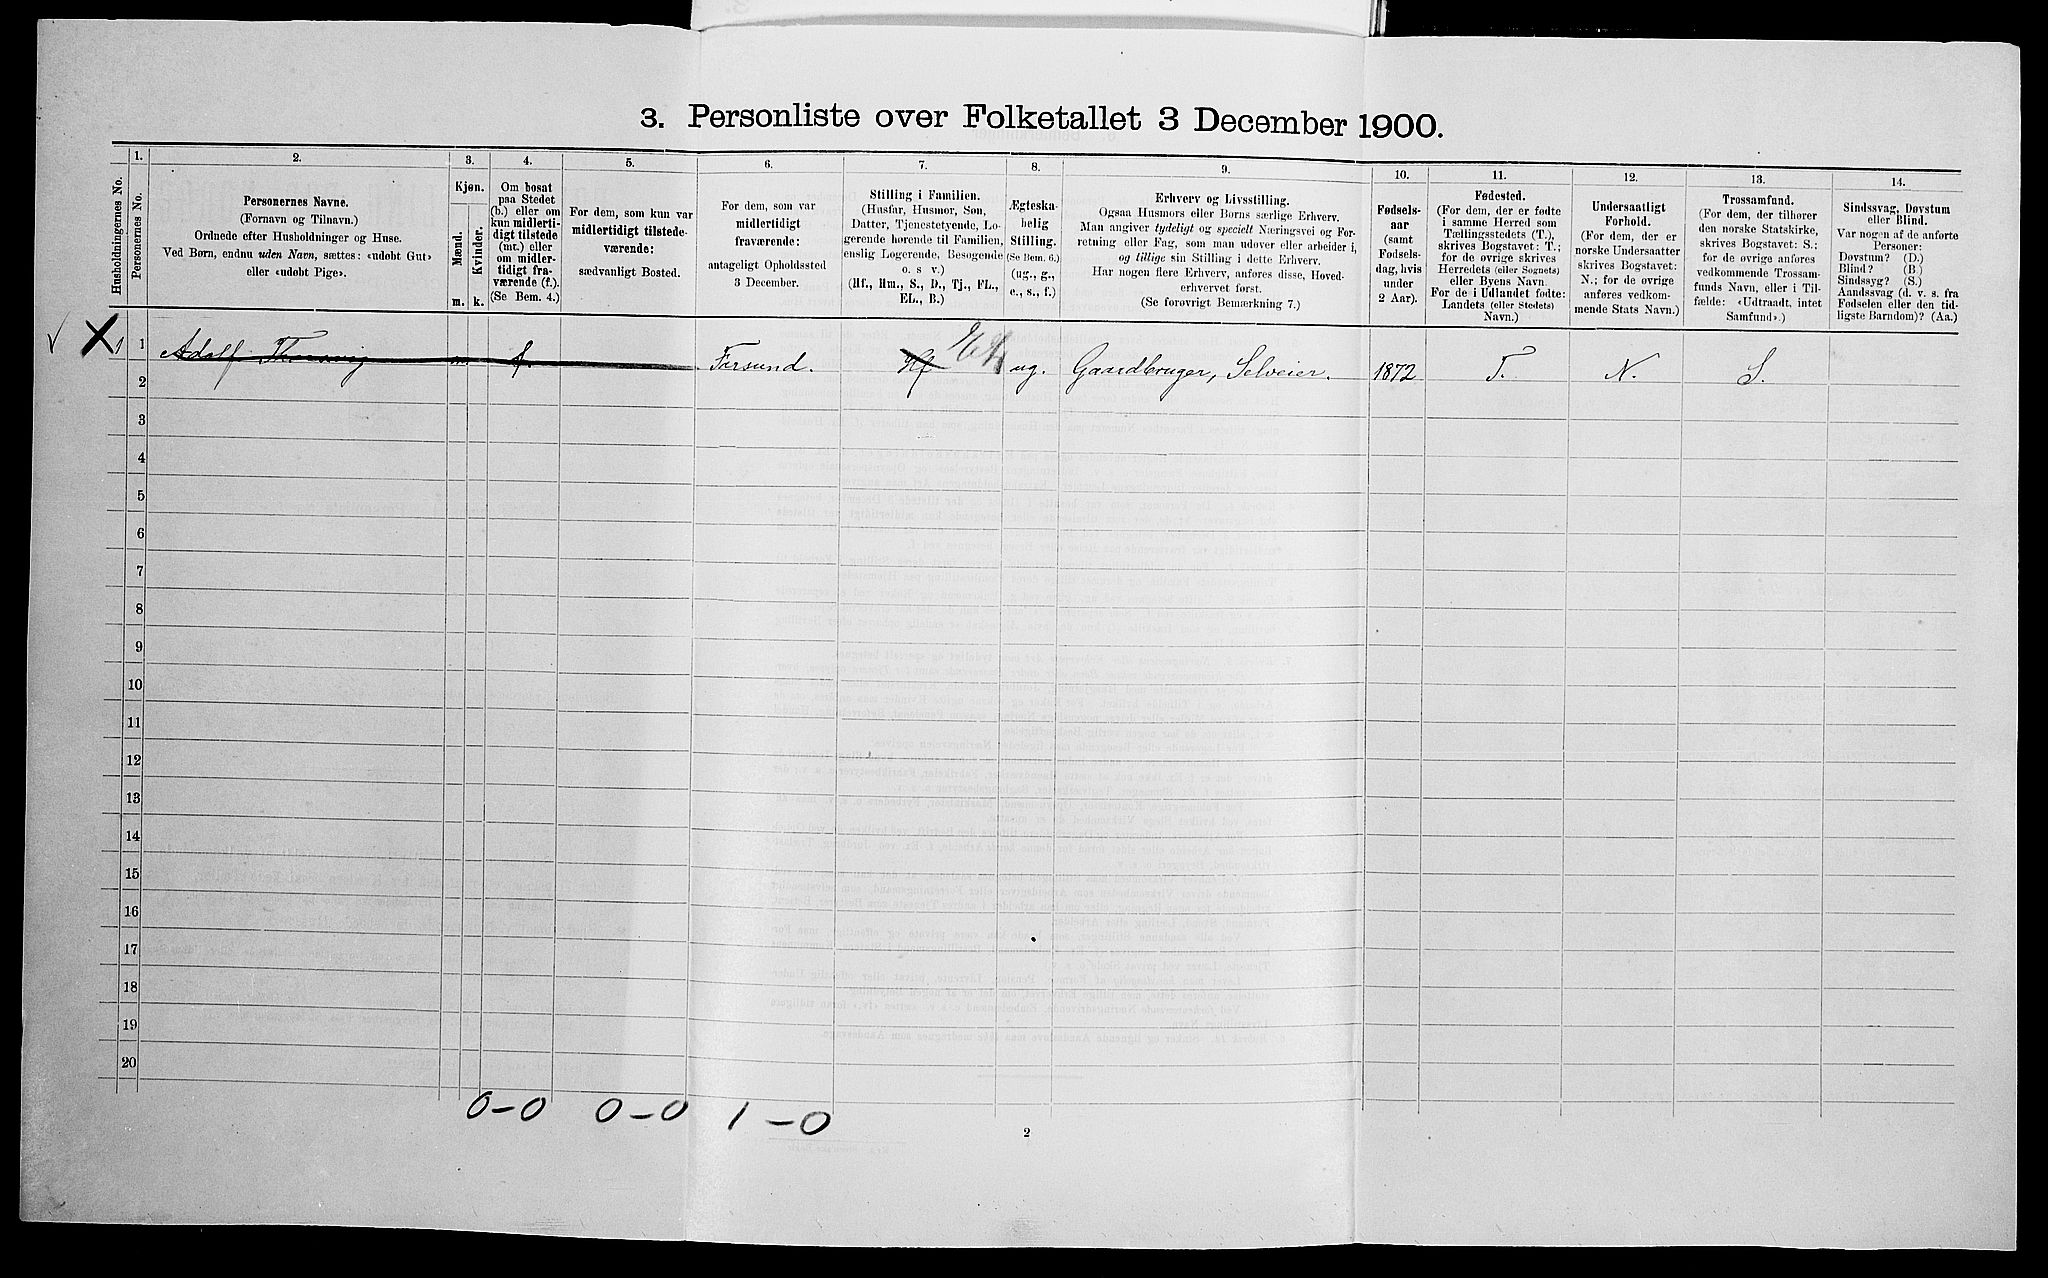 3. Personliste over Folketallet 3 December 1900.
Husholdningernes No.
1.
Personernes No.
2.
Personernes Navne.
(Fornavn og Tilnavn.)
Ordnede efter Husholdninger og Huse.
Ved Børn, endnu uden Navn, sættes: «udøbt Gut»
eller «udøbt Pige».
3.
Kjøn.
Mænd.
Kvinder.
m.
k.
4.
Om bosat
paa Stedet
(b.) eller om
kun midlerti-
digt tilstede
(mt.) eller
om midler-
tidigt fra-
værende (f.).
(Se Bem. 4.)
5.
For dem, som kun var
midlertidigt tilstede-
værende:
sædvanligt Bosted.
6.
For dem, som var
midlertidigt
fraværende:
antageligt Opholdssted
3 December.
7.
Stilling i Familien.
(Husfar, Husmor, Søn,
Datter, Tjenestetyende, Lo-
gerende hørende til Familien,
enslig Logerende, Besøgende
o. s v.)
(Hf., Hm., S., D., Tj., FL.,
EL., B.)
8.
Ægteska-
belig
Stilling.
(Se Bem. 6.)
(ug., g.,
e., s., f.)
9.
Erhverv og Livsstilling.
Ogsaa Husmors eller Børns særlige Erhverv.
Man angiver tydeligt og specielt Næringsvei og For-
retning eller Fag, som man udøver eller arbeider i,
og tillige sin Stilling i dette Erhverv.
Har nogen flere Erhverv, anføres disse, Hoved-
erhvervet først.
(Se forøvrigt Bemærkning 7.)
10.
Fødsels-
aar
(samt
Fødsels-
dag, hvis
under
2 Aar).
11.
Fødested.
(For dem, der er fødte
i samme Herred som
Tællingsstedets (T.),
skrives Bogstavet: T.;
for de øvrige skrives
Herredets (eller Sognets)
eller Byens Navn.
For de i Udlandet fødte:
Landets (eller Stedets)
Navn.)
12.
Undersaatligt
Forhold.
(For dem, der er
norske Undersaatter
skrives Bogstavet:
N.; for de øvrige
anføres vedkom-
mende Stats Navn.)
13.
Trossamfund.
(For dem, der tilhører
den norske Statskirke,
skrives Bogstavet: S.;
for de øvrige anføres
vedkommende Trossam-
funds Navn, eller i Til-
fælde: «Udtraadt, intet
Samfund».)
14.
Sindssvag, Døvstum
eller Blind.
Var nogen af de anførte
Personer:
Døvstum? (D.)
Blind? (B.)
Sindssyg? (S.)
Aandssvag (d. v. s. fra
Fødselen eller den tid-
ligste Barndom)? (Aa.)
√ X 1 1 Adolf m f. Farsund. Hf EL ug. Gaardbruger, Selveier. 1872 T. N. S.
2
3
4
5
6
7
8
9
10
11
12
13
14
15
16
17
18
19
20
0-0 0-0 1-0
2